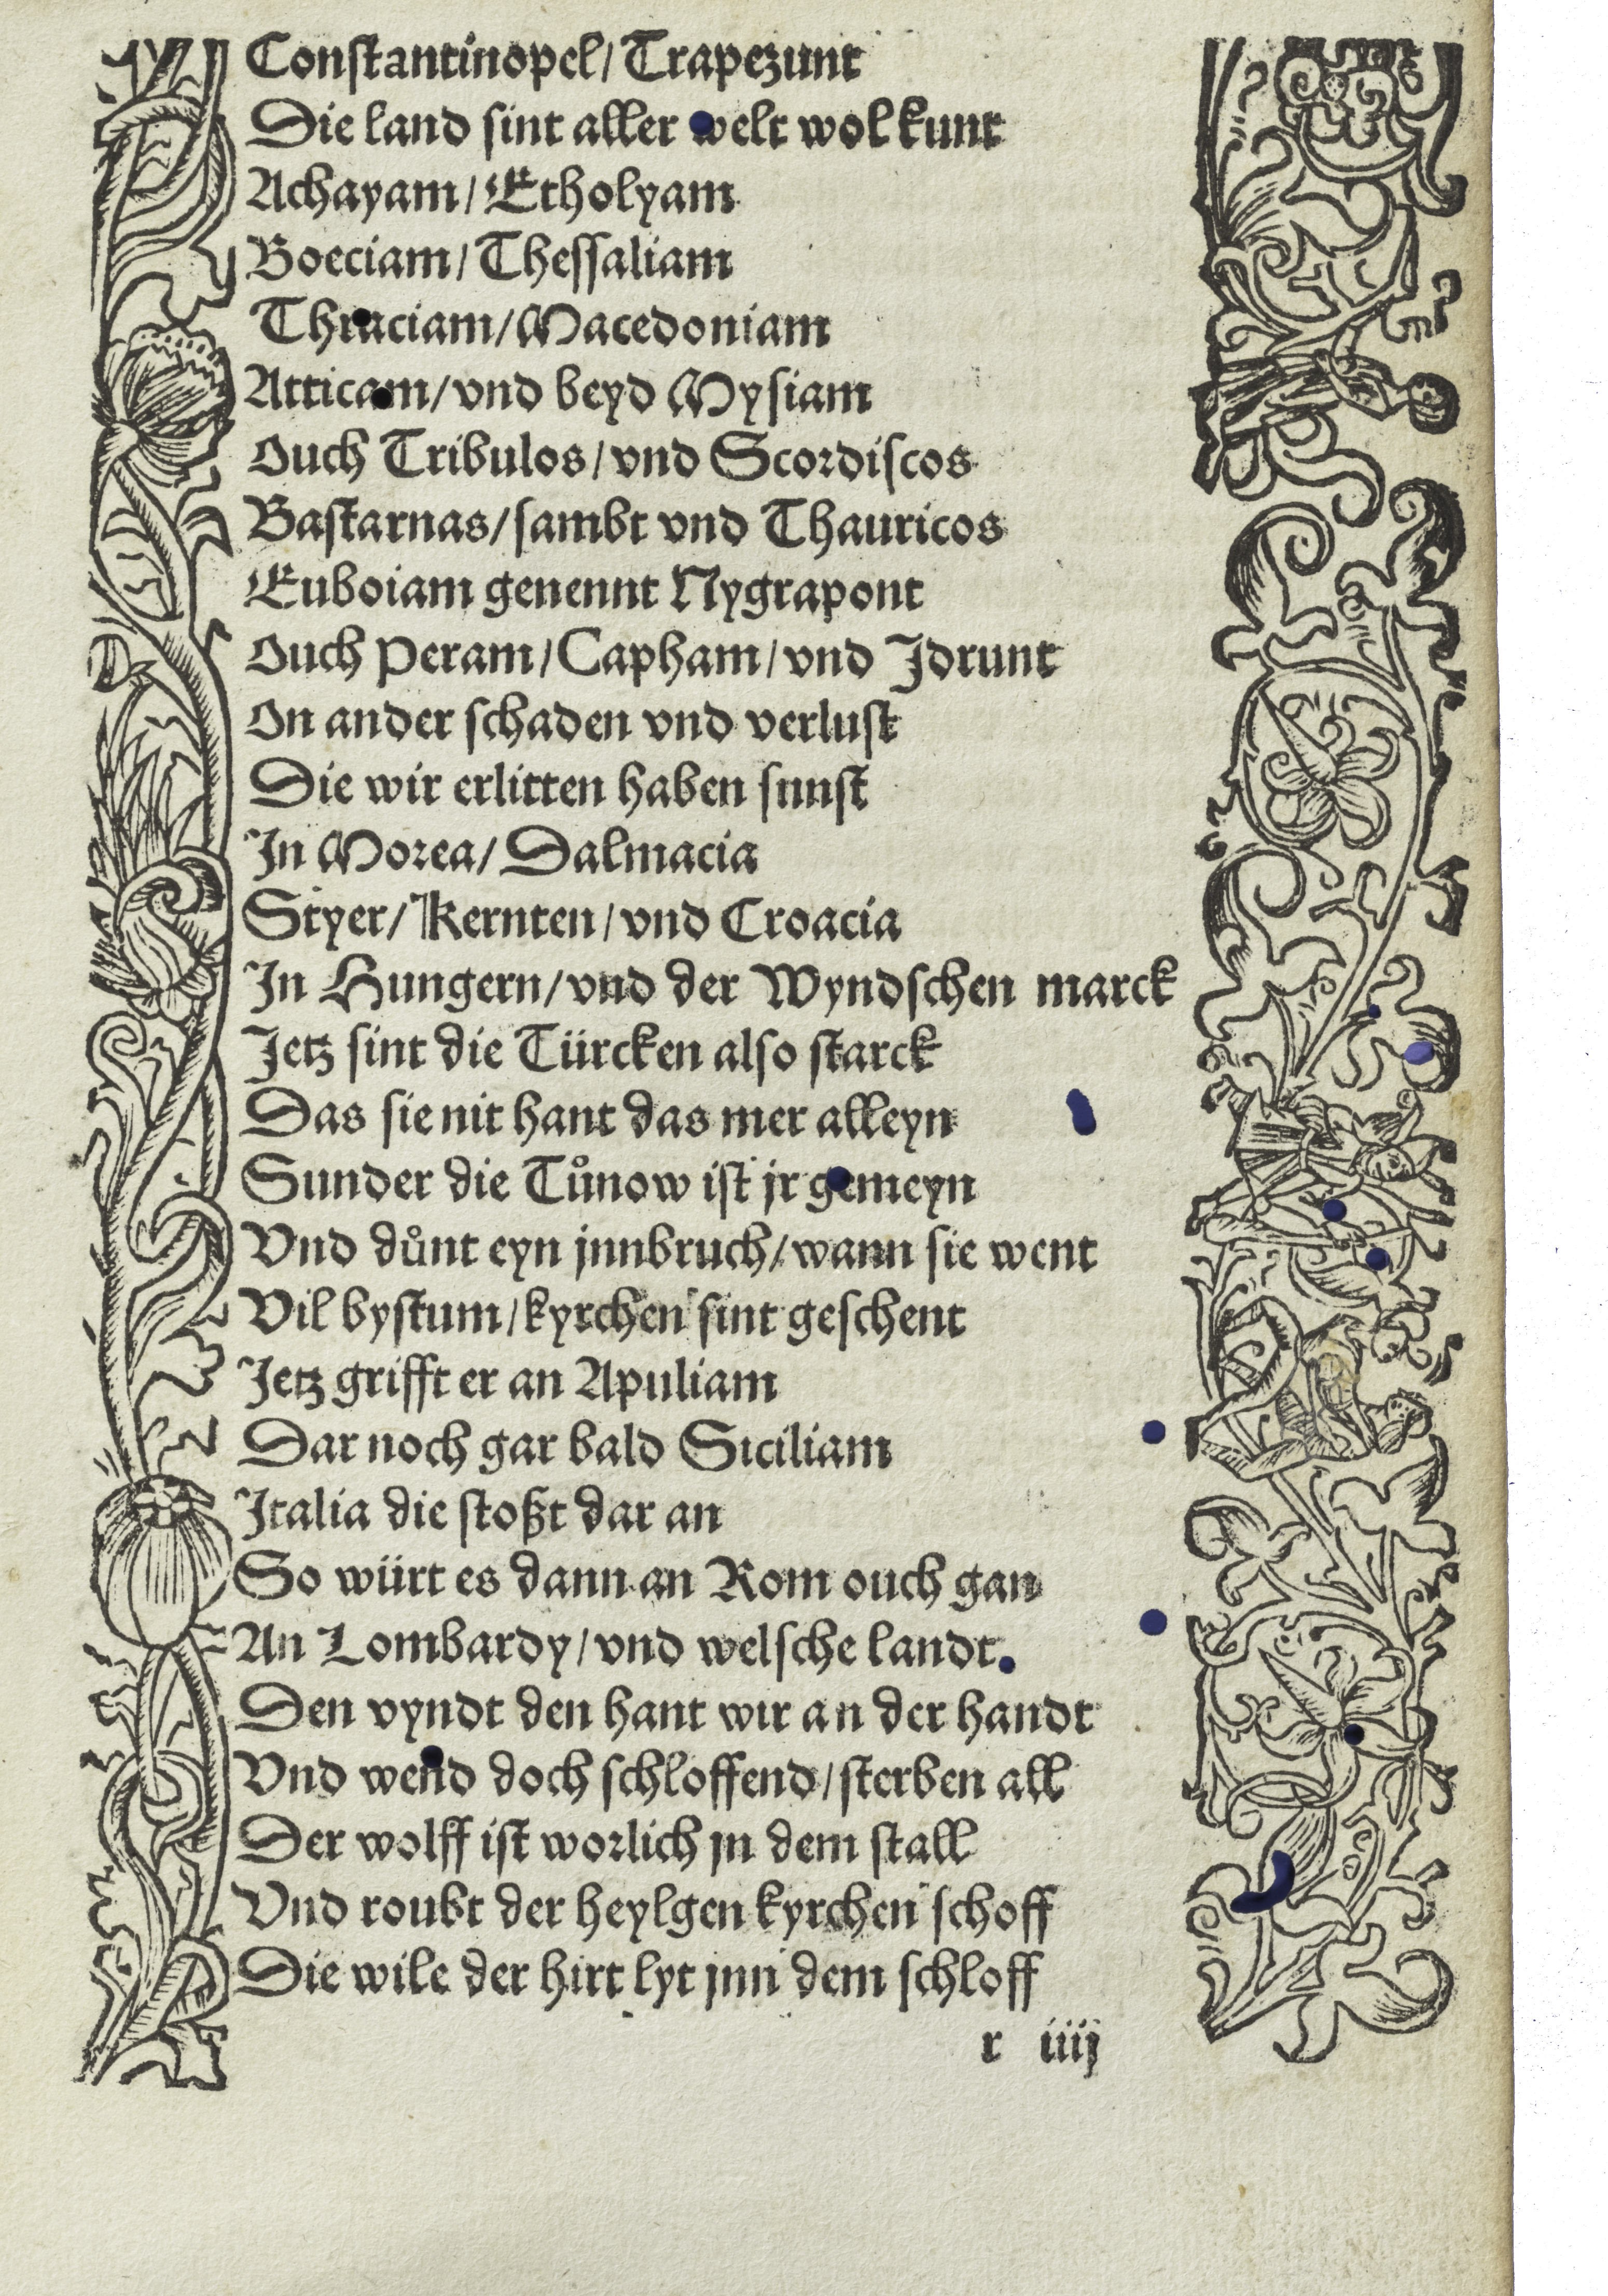 Conſtantinopel/ Trapezunt
Die land ſint aller welt wol kunt
Achayam/ Etholyam
Boeciam/ Theſſaliam
Thraciam/ Macedoniam
Atticam/ vnd beyd Myſiam
Ouch Tribulos/ vnd Scordiſcos
Baſtarnas/ ſambt vnd Thauricos
Euboiam genennt Nygrapont
Ouch Peram/ Capham/ vnd Jdrunt
On ander ſchaden vnd verluſt
Die wir erlitten haben ſunſt
Jn Morea/ Dalmacia
Styer/ Kernten/ vnd Croacia
Jn Hungern/ vnd der Wyndſchen marck
Jetz ſint die Türcken alſo ſtarck
Das ſie nit hant das mer alleyn
Sunder die Tůnow iſt jr gemeyn
Vnd důnt eyn jnnbruch/ wann ſie went
Vil byſtum/ kyrchen ſint geſchent
Jetz grifft er an Apuliam
Dar noch gar bald Siciliam
Jtalia die ſtoßt dar an
So würt es dann an Rom ouch gan
An Lombardy/ vnd welſche landt.
Den vyndt den hant wir an der handt
Vnd wend doch ſchloffend/ ſterben all
Der wolff iſt worlich jn dem ſtall
Vnd roubt der heylgen kyrchen ſchoff
Die wile der hirt lyt jnn dem ſchloff
r iiij